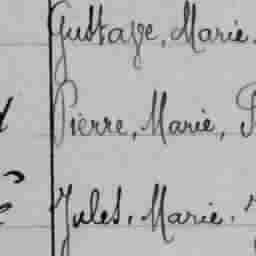 Gustave, Marie.
Pierre, Marie,
Jules, Marie.